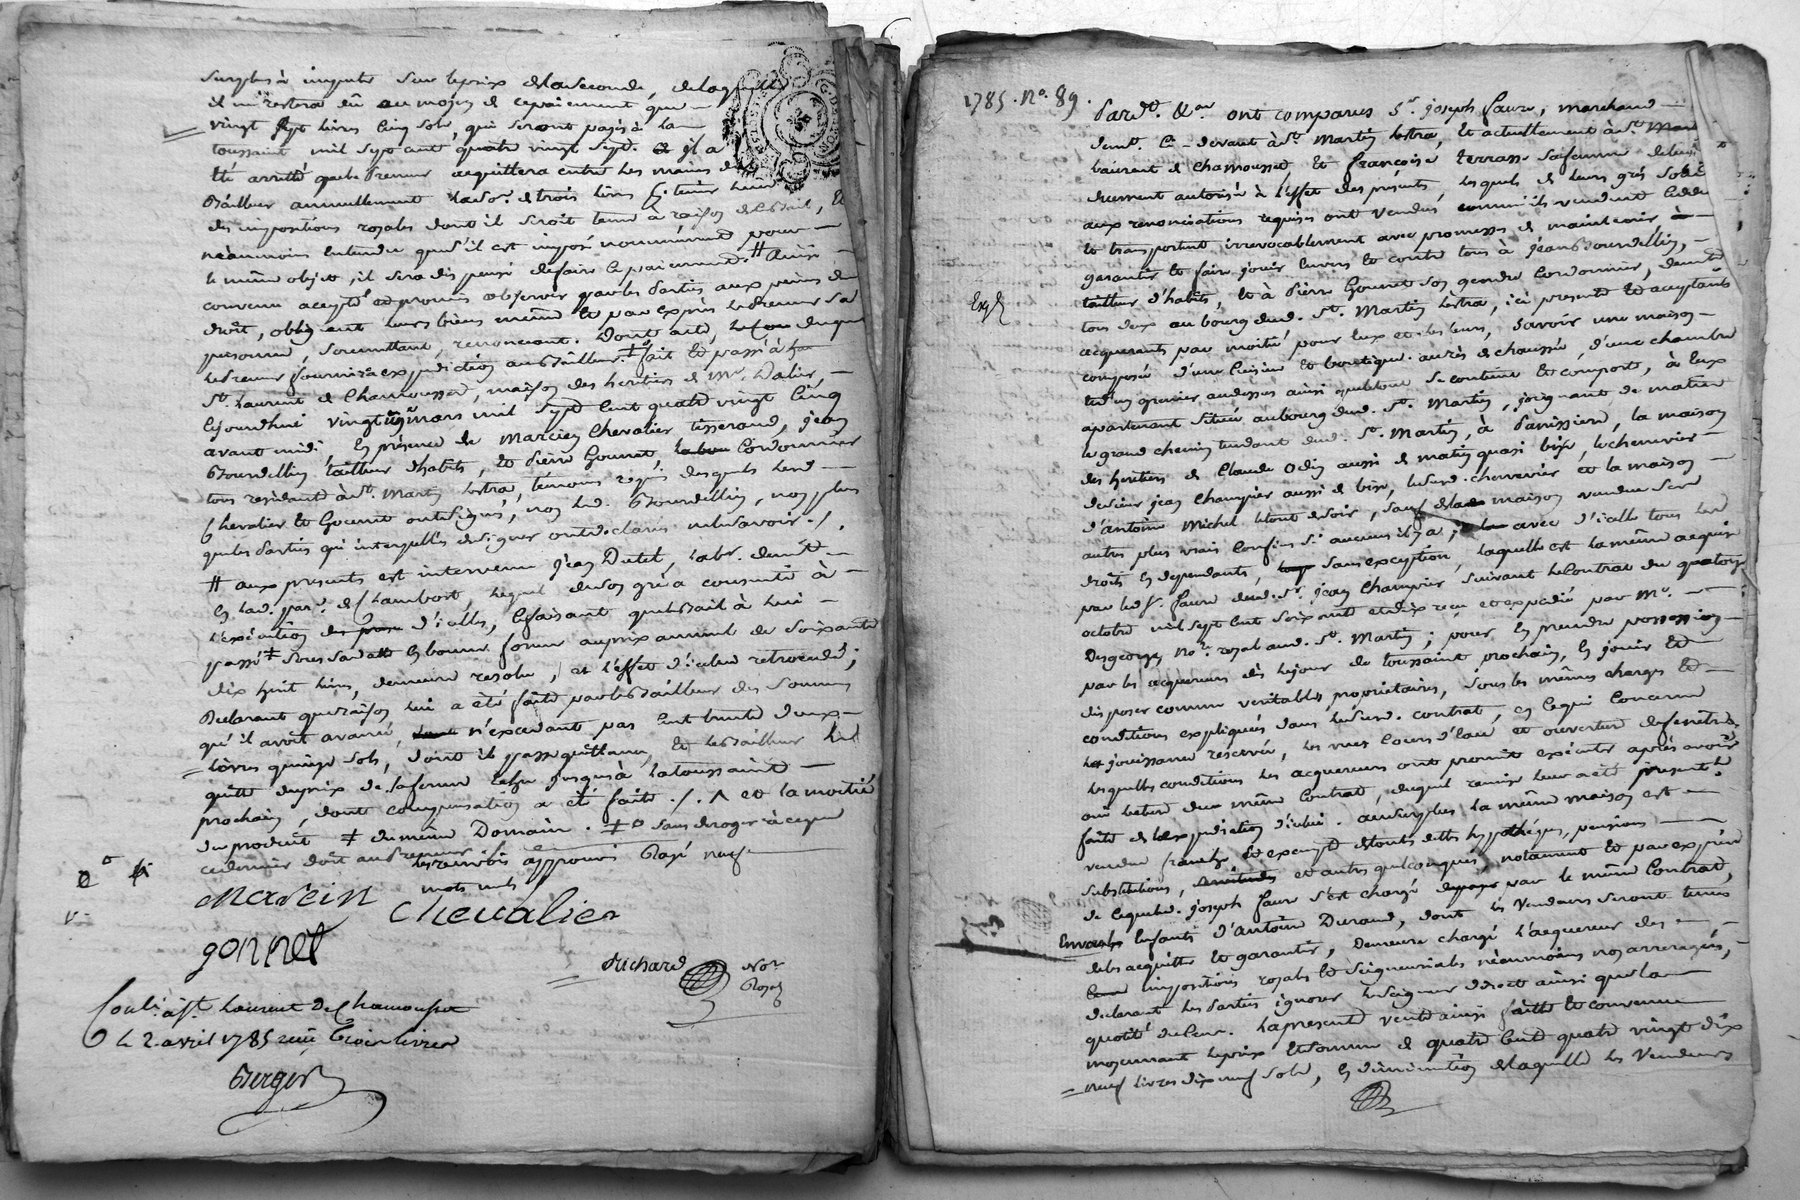 surplus à imputer sur le prix de la seconde, de laquelle
il ne restera dû au moyen de ce paiement que
vingt sept livres cinq sols, qui seront payés à la
toussaint mil sept cent quatre vingt sept. il a
été arrêté que le preneur acquittera entre les mains du
Bailleur annuellement la so. de trois livres
des impositions royales dont il seroit tenu à raison de bail, et
néanmoins entendu que s'il est imposé nommément pour
le même objet, il sera dispensé de faire ce paiement. # Ainsi
convenu accepté et promis observer par les parties aux peines de
droit, obligeant leurs biens même et par exprès le preneur sa
personne, soumettant, renonçant. Dont acte, duquel
le preneur fournira expédition au Bailleur. ‡ fait et passé à
St. Laurent de Chamousset, maison des heritiers de Mr. Dalier,
le jourdhui vingt mars mil sept cent quatre vingt cinq
avant midi, En présence de Marcien Chevalier tisserand, jean
Bourdellin tailleur d'habits, et Pierre Gounet, Cordonnier
tous residants à St. Martin lestra, temoins requis desquels lesd.
Chevalier et Gounet ont signés, non led. Bourdellin, non plus
que les parties qui interpellés de signer ont déclaré ne le savoir ./.
# aux presents est intervenu jean Dutel, labr. demt.
en lad. par. de Chambost, lequel de son gré a consenti à
l'exécution d'icelles, lui
passé sous sa date en bonne forme au prix annuel de soixante
dix huit livres, demeure resolu, et l'effet d'icelui retrocendé;
Déclarant que raison lui a été faite par le Bailleur des sommes
qu'il avoit avancé, n'excedant pas cent trente deux
livres quinze sols, dont il passe quittance, et le Bailleur led.
quitte du prix de sa ferme jusqu'à la toussaint
prochain, dont compensation a été faite ./. ^ et la moitié
du produit ‡ du même Domaine. ‡° sans deroger à ce que
ce dernier doit au preneur
les renvois approuvé Rayé neuf
mots nuls
Marcin Chevalier
gonnet
Richard Nore
Royal
Conlé à St. Laurent De Chamousset
le 2. avril 1785 reçu Trois livres
Berger
1785. No. 89.
Pard.t &.on ont comparus Sr. joseph faure, marchand
demt. Ci-devant à St. Martin lestra, et actuellement à St.
Laurent de Chamousset, et françoise terrasse sa femme de lui
duement autorisée à l'effet des présents, lesquels de leurs grés
aux renonciations requises ont vendus, comme ils vendent cedde
et transportent irrevocablement avec promesses de maintenir
garantir et faire jouir envers et contre tous à jean Bourdellin,
tailleur d'habits, et à Pierre Gounet son gendre Cordonnier, demt.
tous deux au bourg dud. St. Martin lestra, ici presents et acceptants
Expé
acquerants par moitié pour eux et les leurs, savoir une maison
composée d'une Cuisine et boutique au rés de chaussée, d'une chambre
et d'un grenier au dessus ainsi que le tout se contient et comporte, à eux
apartenant située au bourg dud. St. Martin, joignant de matin
le grand chemin tendant dud. St. Martin, à Panissiere, la maison
des héritiers de Claude Odin aussi de matin quasi bise, le chenevier
du sieur jean Champier aussi de bise, led. chenevier et la maison
d'antoine Michel le tout de soir, sauf de la maison vendue ses
autres plus vrais Confins si aucuns il y a; avec d'icelle tous les
droits en dependants, sans exception, laquelle est la même acquise
par led. Sr. faure dud. Sr. jean Champier suivant le Contrat du quatorze
octobre mil sept cent soixante et dix reçu et expedié par Me.
Desgeorges nore. royal aud. St. Martin; pour en prendre possession
par les acquereurs dès le jour de toussaint prochain, en jouir et
disposer comme veritables proprietaires, sous les mêmes charges et
conditions expliquées dans led. contrat, en ce qui concerne
la jouissance réservée, les vues cours d'eau et ouverture de fenêtre,
lesquelles conditions les acquereurs ont promis exécuter après avoir
oui lecture du même Contrat, duquel remise leur a été presentt.
faite de l'expedition d'icelui. au surplus la même maison est
vendue franche et exempte de toutes dettes hypothéques, pensions
substitutions, et autres quelconques, notament et par exprès
de ce que led. joseph faure s'est chargé par le même Contrat,
Envers les Enfants d'Antoine Durand, dont les Vendeurs seront tenus
de les acquitter et garantir, Demeure chargé l'acquereur des
impositions royales et seigneuriales néanmoins non arreragés,
declarant les parties ignorer le seigneur direct ainsi que la
quotité du cens. La presente vente ainsi faite et convenue
moyennant le prix et somme de quatre cent quatre vingt dix
neuf livres dix neuf sols, en diminution de laquelle les Vendeurs